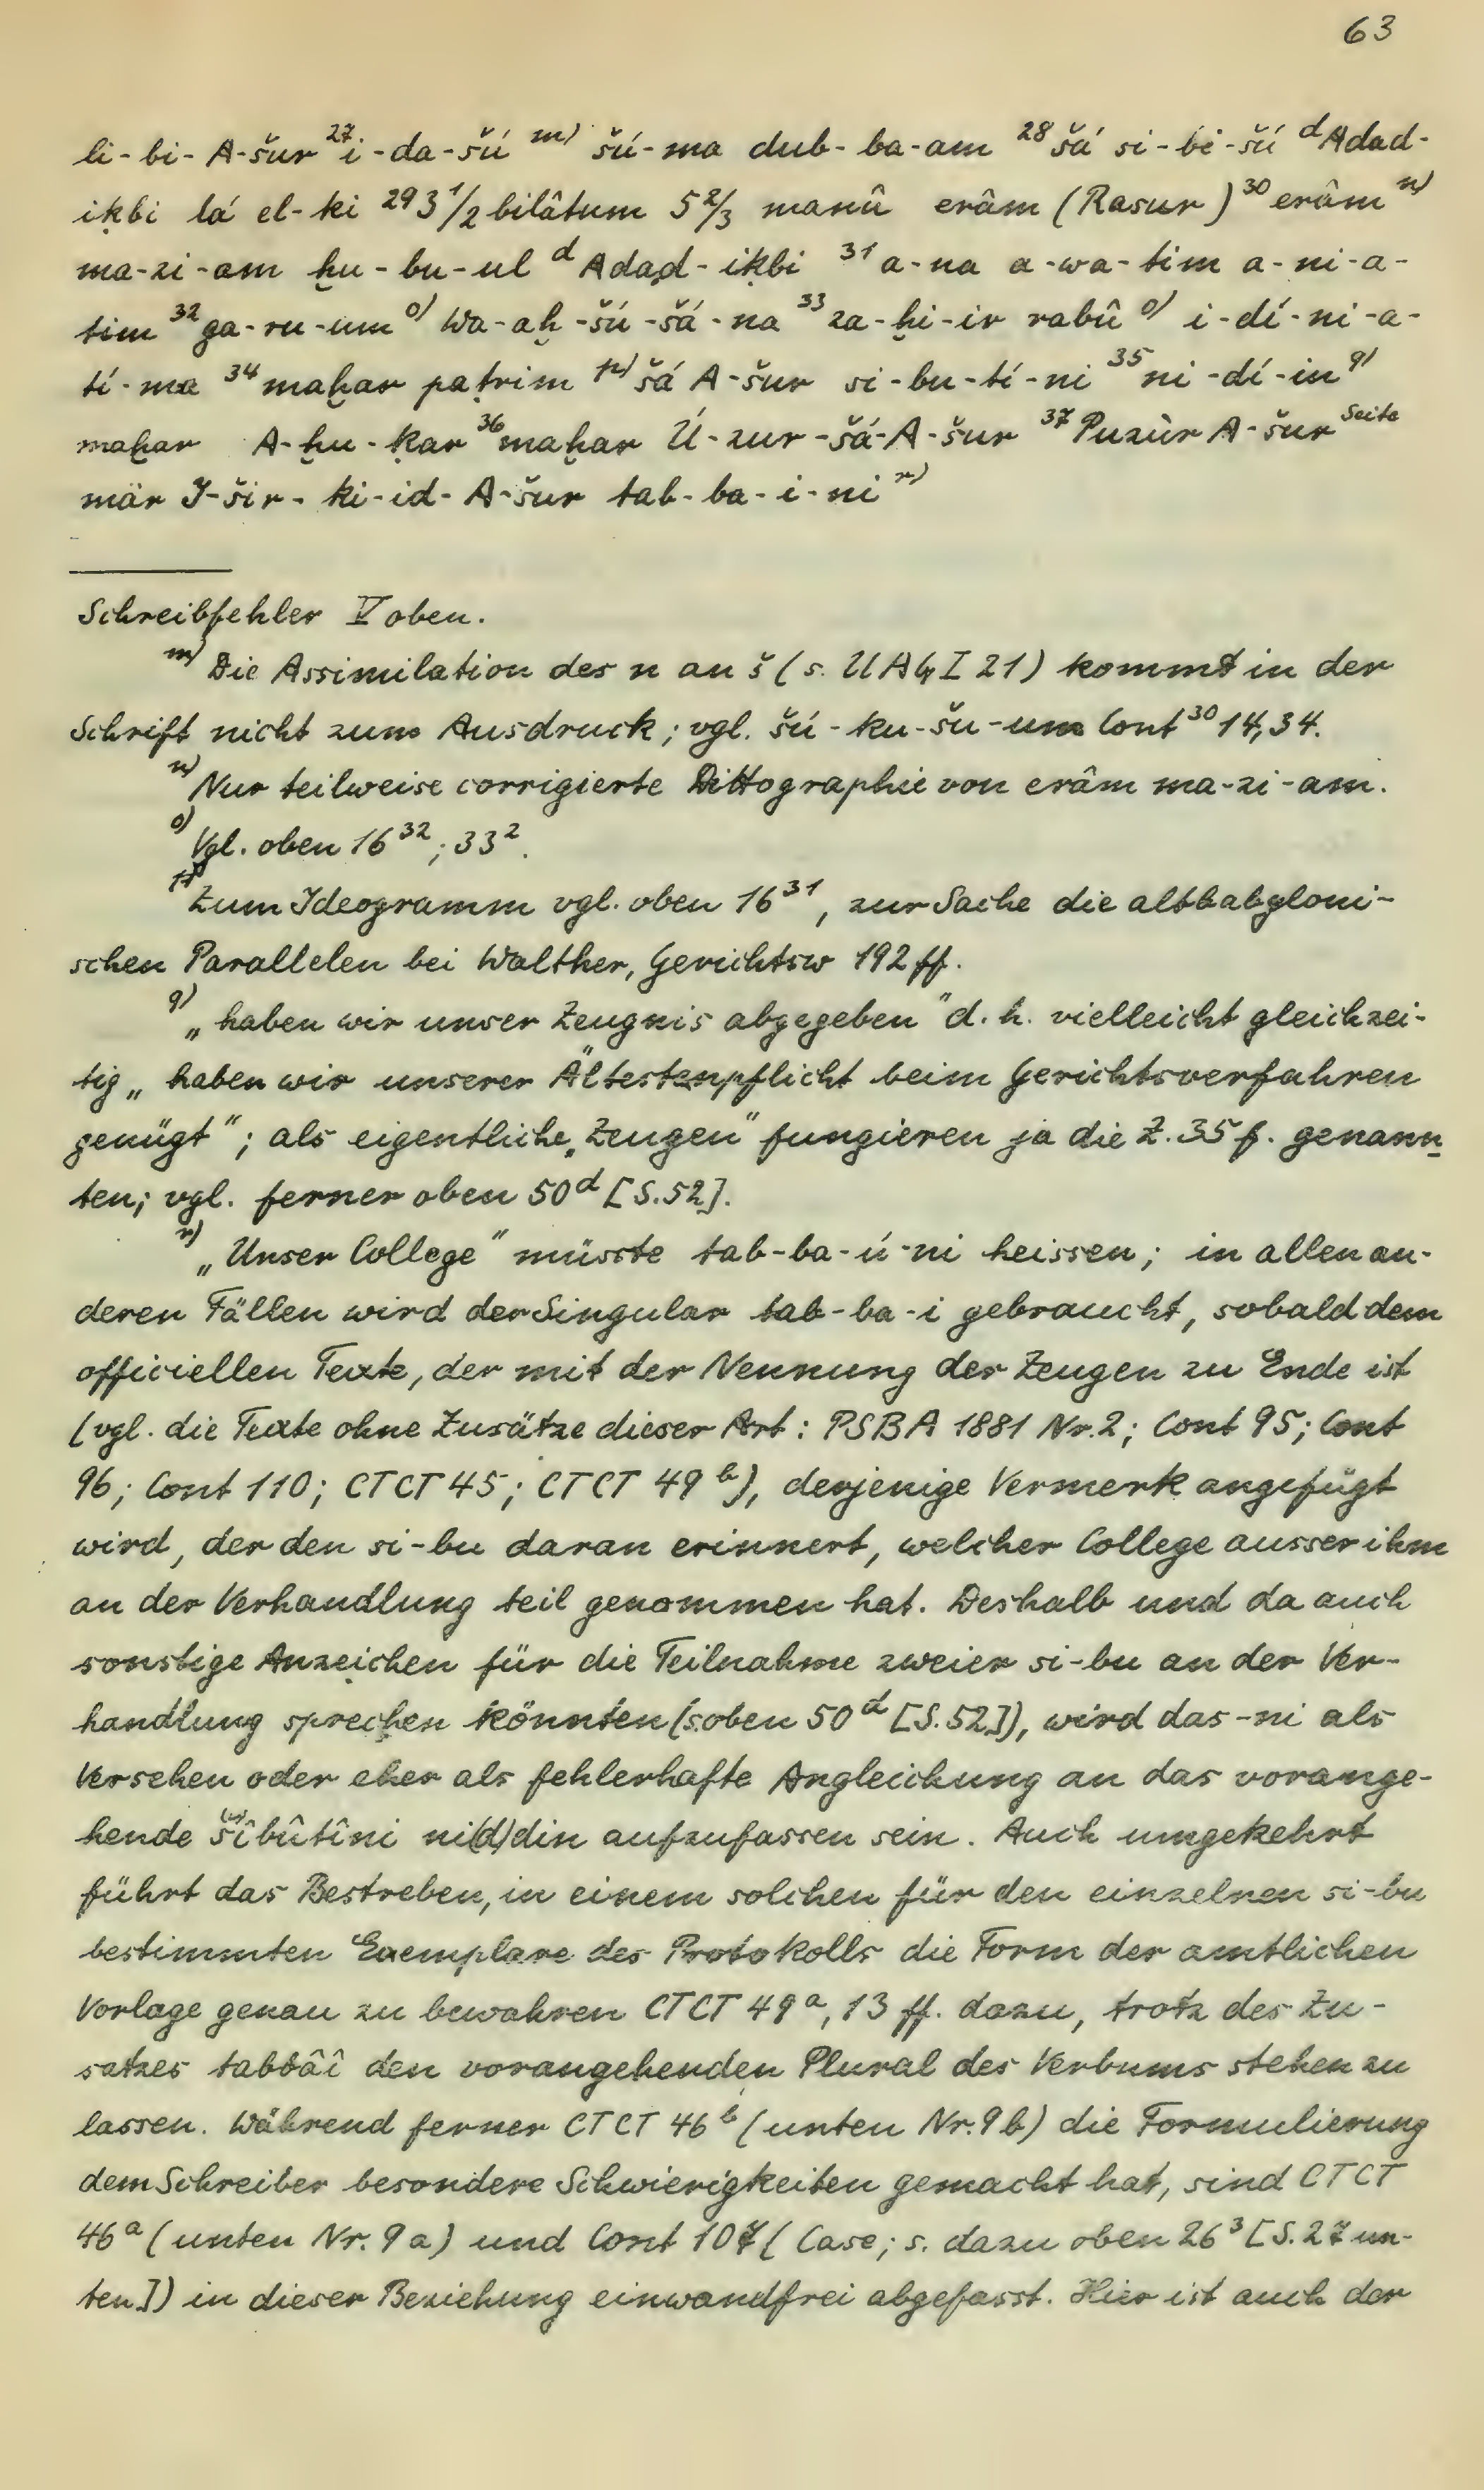 63
li-bi-A-šur ²⁷i-da-šú ᵐ⁾ šú-ma dub-ba-am ²⁸šá si-bi-šú ᵈAdad-
iḳbi lá el-ki ²⁹3 1/2 bilâtum 5 2/3 manû erâm (Rasur) ³⁰erâm ⁿ⁾
ma-zi-am ḫu-bu-ul ᵈAdad-iḳbi ³¹a-na a-wa-tim a-ni-a-
tim ³²ga-ru-um ᵒ⁾ Wa-aḫ-šú-šá-na ³³za-ḫi-ir rabû ᵒ⁾ i-dí-ni-a-
tí-ma ³⁴maḫar paṭrim ᵖ⁾ šá A-šur si-bu-tí-ni ³⁵ni-dí-in ᵍ⁾
maḫar A-ḫu-ḳar ³⁶maḫar Ú-zur-šá-A-šur ³⁷Puzùr A-šur ˢᵉⁱᵗᵉ
mär I-šir-ki-id-A-šur tab-ba-i-ni ʳ⁾
Schreibfehler V oben.
ᵐ⁾ Die Assimilation des n an š (s. UAG I 21) kommt in der
Schrift nicht zum Ausdruck; vgl. šú-ku-šu-um Cont³⁰ 14,34.
ⁿ⁾ Nur teilweise corrigierte Dittographie von erâm ma-zi-am.
ᵒ⁾ Vgl. oben 16³²; 33².
ᵖ⁾ Zum Ideogramm vgl. oben 16³¹, zur Sache die altbabyloni-
schen Parallelen bei Walther, Gerichtsw 192 ff.
q) „haben wir unser Zeugnis abgegeben" d. h. vielleicht gleichzei-
tig „haben wir unserer Ältestenpflicht beim Gerichtsverfahren
genügt"; als eigentliche „Zeugen" fungieren ja die Z. 35 f. genann-
ten; vgl. ferner oben 50ᵈ [S. 52].
ʳ⁾ „Unser College" müsste tab-ba-ú-ni heissen; in allen an-
deren Fällen wird der Singular tab-ba-i gebraucht, sobald dem
officiellen Texte, der mit der Nennung der Zeugen zu Ende ist
(vgl. die Texte ohne Zusätze dieser Art: PSBA 1881 Nr. 2; Cont 95; Cont
96; Cont 110; CTCT 45; CTCT 49ᵇ), derjenige Vermerk angefügt
wird, der den si-bu daran erinnert, welcher College ausser ihm
an der Verhandlung teil genommen hat. Deshalb und da auch
sonstige Anzeichen für die Teilnahme zweier si-bu an der Ver-
handlung sprechen könnten (s. oben 50ᵈ [S. 52]), wird das -ni als
Versehen oder eher als fehlerhafte Angleichung an das vorange-
hende šîbûtîni ni(d)din aufzufassen sein. Auch umgekehrt
führt das Bestreben, in einem solchen für den einzelnen si-bu
bestimmten Exemplare des Protokolls die Form der amtlichen
Vorlage genau zu bewahren CTCT 49ᵃ, 13 ff. dazu, trotz des Zu-
satzes tabbâî den vorangehenden Plural des Verbums stehen zu
lassen. Während ferner CTCT 46ᵇ (unten Nr. 9 b) die Formulierung
dem Schreiber besondere Schwierigkeiten gemacht hat, sind CTCT
46ᵃ (unten Nr. 9 a) und Cont 107 (Case; s. dazu oben 26³ [S. 27 un-
ten]) in dieser Beziehung einwandfrei abgefasst. Hier ist auch der